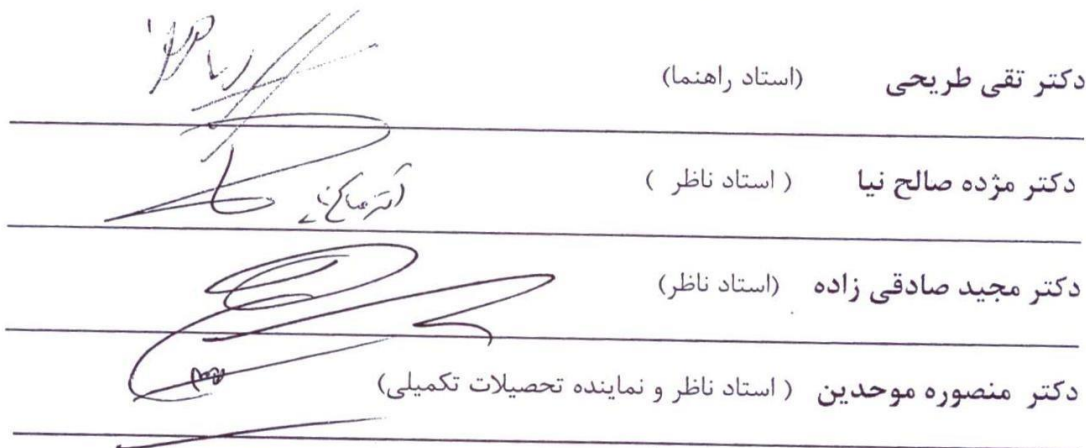 دکتر تقی طریحی (استاد راهنما)
دکتر مژده صالح نیا ( استاد ناظر )
دکتر مجید صادقی زاده (استاد ناظر)
دکتر منصوره موحدین ( استاد ناظر و نماینده تحصیلات تکمیلی)